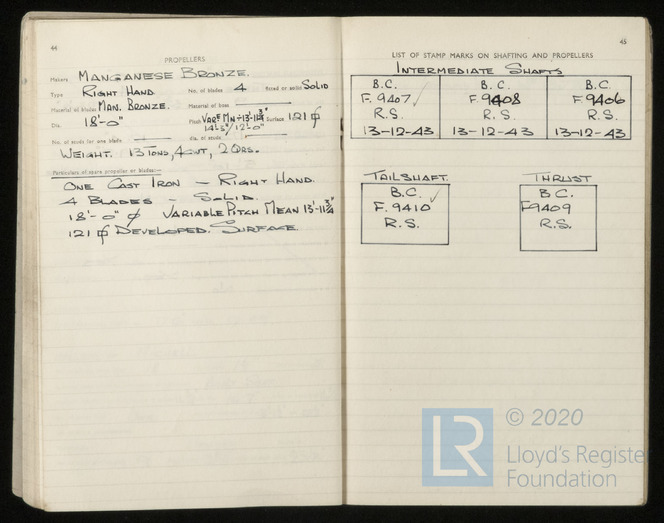 44
PROPELLERS
Makers MANGANESE BRONZE.
Type RIGHT HAND No. of blades 4 fixed or solid SOLID
Material of blades MAN. BRONZE. Material of boss
Dia. 18'-0" Pitch VARE MN=13'-11¾" Surface 121 ф
14'-3"/12'-0"
No. of studs for one blade dia. of studs
WEIGHT. 13 TONS, 4 CWT, 2 QRS.
Particulars of spare propeller or blades:—
ONE CAST IRON — RIGHT HAND.
4 BLADES — SOLID.
18'-0" ф VARIABLE PITCH MEAN 13'-11¾"
121 ф DEVELOPED. SURFACE.
45
LIST OF STAMP MARKS ON SHAFTING AND PROPELLERS
INTERMEDIATE SHAFTS
B.C. B.C. B.C.
F. 9407 ✓ F. 9408 F. 9406
R.S. R.S. R.S.
13-12-43 13-12-43 13-12-43
TAILSHAFT. THRUST
B.C. ✓ B.C.
F. 9410 F9409
R.S. R.S.
© 2020
LR Lloyd's Register
Foundation